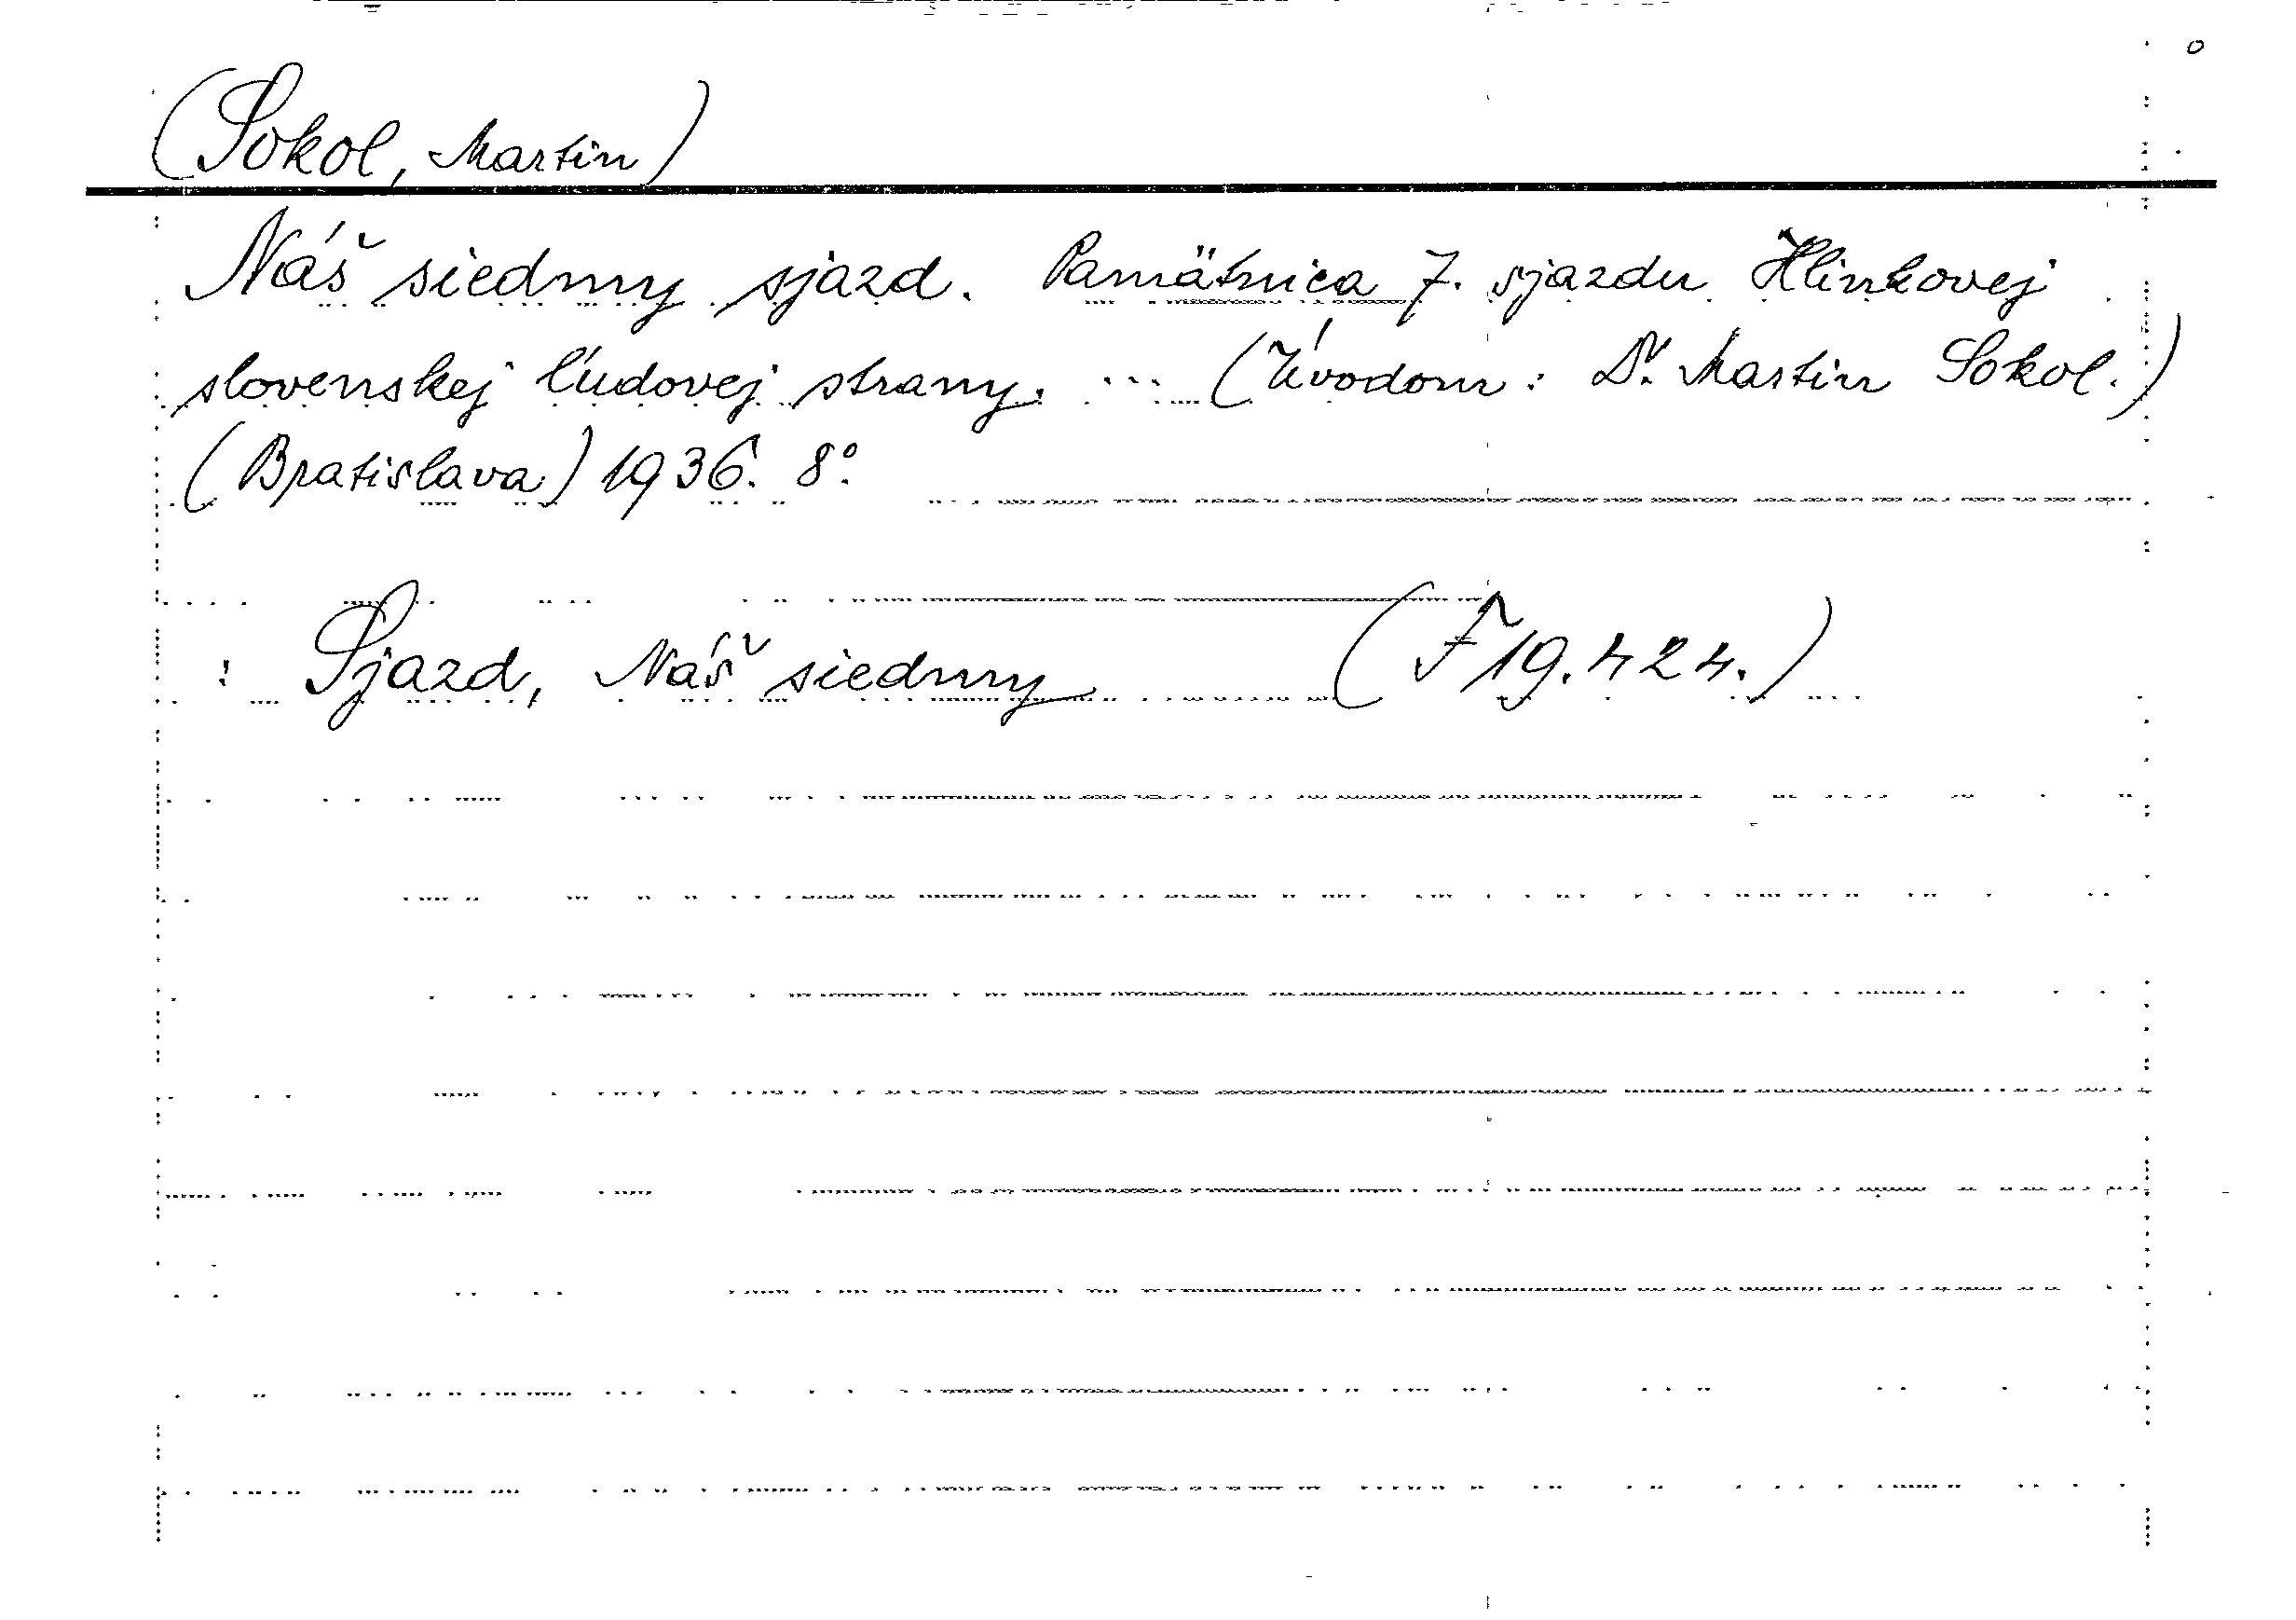 (Sokol, Martin)
Náš siedmy sjazd. Pamätnica 7. sjazdu Hlinkovej
slovenskej ľudovej strany. ... (Úvodom: Dr. Martin Sokol.)
(Bratislava) 1936. 8°.
: Sjazd, Náš siedmy (F 19.424.)